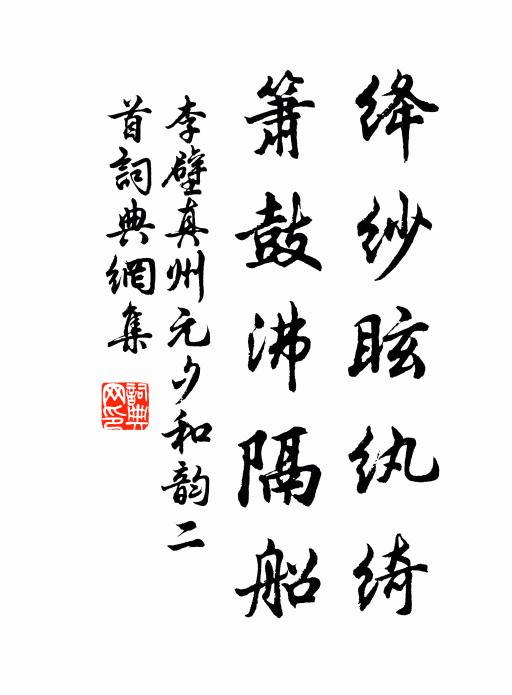 绛纱眩纨绮
箫鼓沸隔船
李壁真州元夕和韵二
首詞典網集
詞典
网印